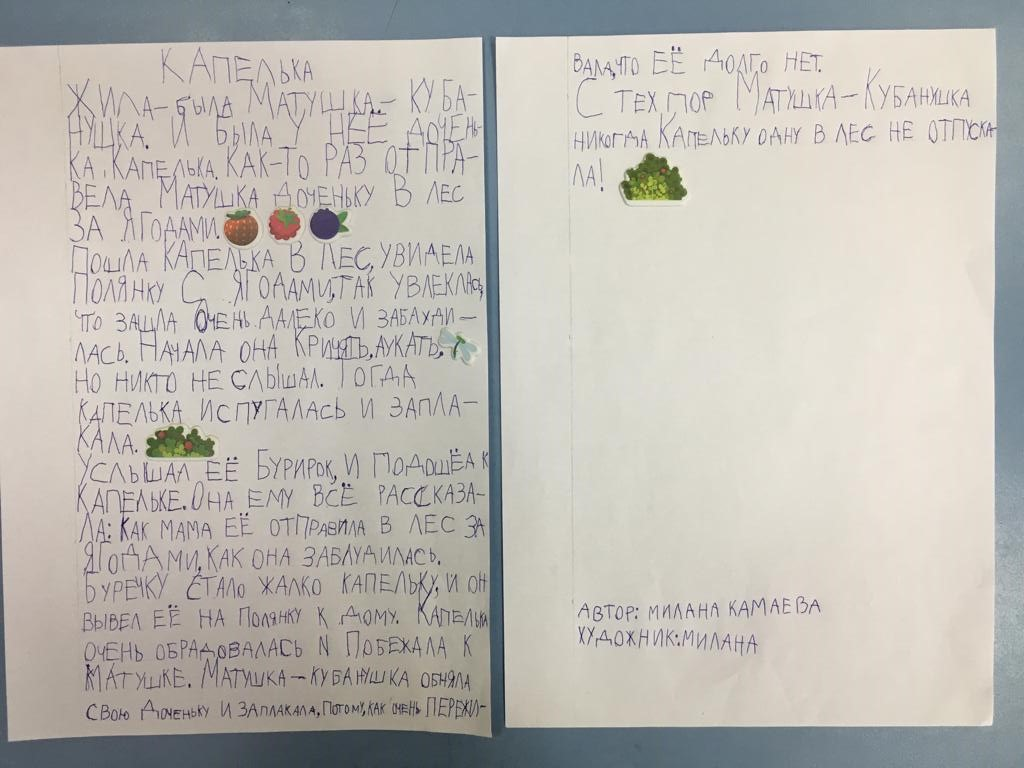 КАПЕЛЬКА
ЖИЛА-БЫЛА МАТУШКА-КУБА-
НУШКА. И БЫЛА У НЕЁ ДОЧЕНЬ-
КА, КАПЕЛЬКА. КАК-ТО РАЗ ОТПРА-
ВЕЛА МАТУШКА ДОЧЕНЬКУ В ЛЕС
ЗА ЯГОДАМИ.
ПОШЛА КАПЕЛЬКА В ЛЕС, УВИДЕЛА
ПОЛЯНКУ С ЯГОДАМИ, ТАК УВЛЕКЛАСЬ,
ЧТО ЗАШЛА ОЧЕНЬ ДАЛЕКО И ЗАБЛУДИ-
ЛАСЬ. НАЧАЛА ОНА КРИЧЯТЬ, АУКАТЬ,
НО НИКТО НЕ СЛЫШАЛ. ТОГДА
КАПЕЛЬКА ИСПУГАЛАСЬ И ЗАПЛА-
КАЛА.
УСЛЫШАЛ ЕЁ БУРИРОК, И ПОДОШЁЛ К
КАПЕЛЬКЕ. ОНА ЕМУ ВСЁ РАССКАЗА-
ЛА: КАК МАМА ЕЁ ОТПРАВИЛА В ЛЕС ЗА
ЯГОДАМИ, КАК ОНА ЗАБЛУДИЛАСЬ.
БУРЕЧКУ СТАЛО ЖАЛКО КАПЕЛЬКУ, И ОН
ВЫВЕЛ ЕЁ НА ПОЛЯНКУ К ДОМУ. КАПЕЛЬКА
ОЧЕНЬ ОБРАДОВАЛАСЬ И ПОБЕЖАЛА К
МАТУШКЕ. МАТУШКА-КУБАНУШКА ОБНЯЛА
СВОЮ ДОЧЕНЬКУ И ЗАПЛАКАЛА, ПОТОМУ, КАК ОЧЕНЬ ПЕРЕЖИ-
ВАЛА, ЧТО ЕЁ ДОЛГО НЕТ.
С ТЕХ ПОР МАТУШКА-КУБАНУШКА
НИКОГДА КАПЕЛЬКУ ОДНУ В ЛЕС НЕ ОТПУСКА-
ЛА!
АВТОР: МИЛАНА КАМАЕВА
ХУДОЖНИК: МИЛАНА